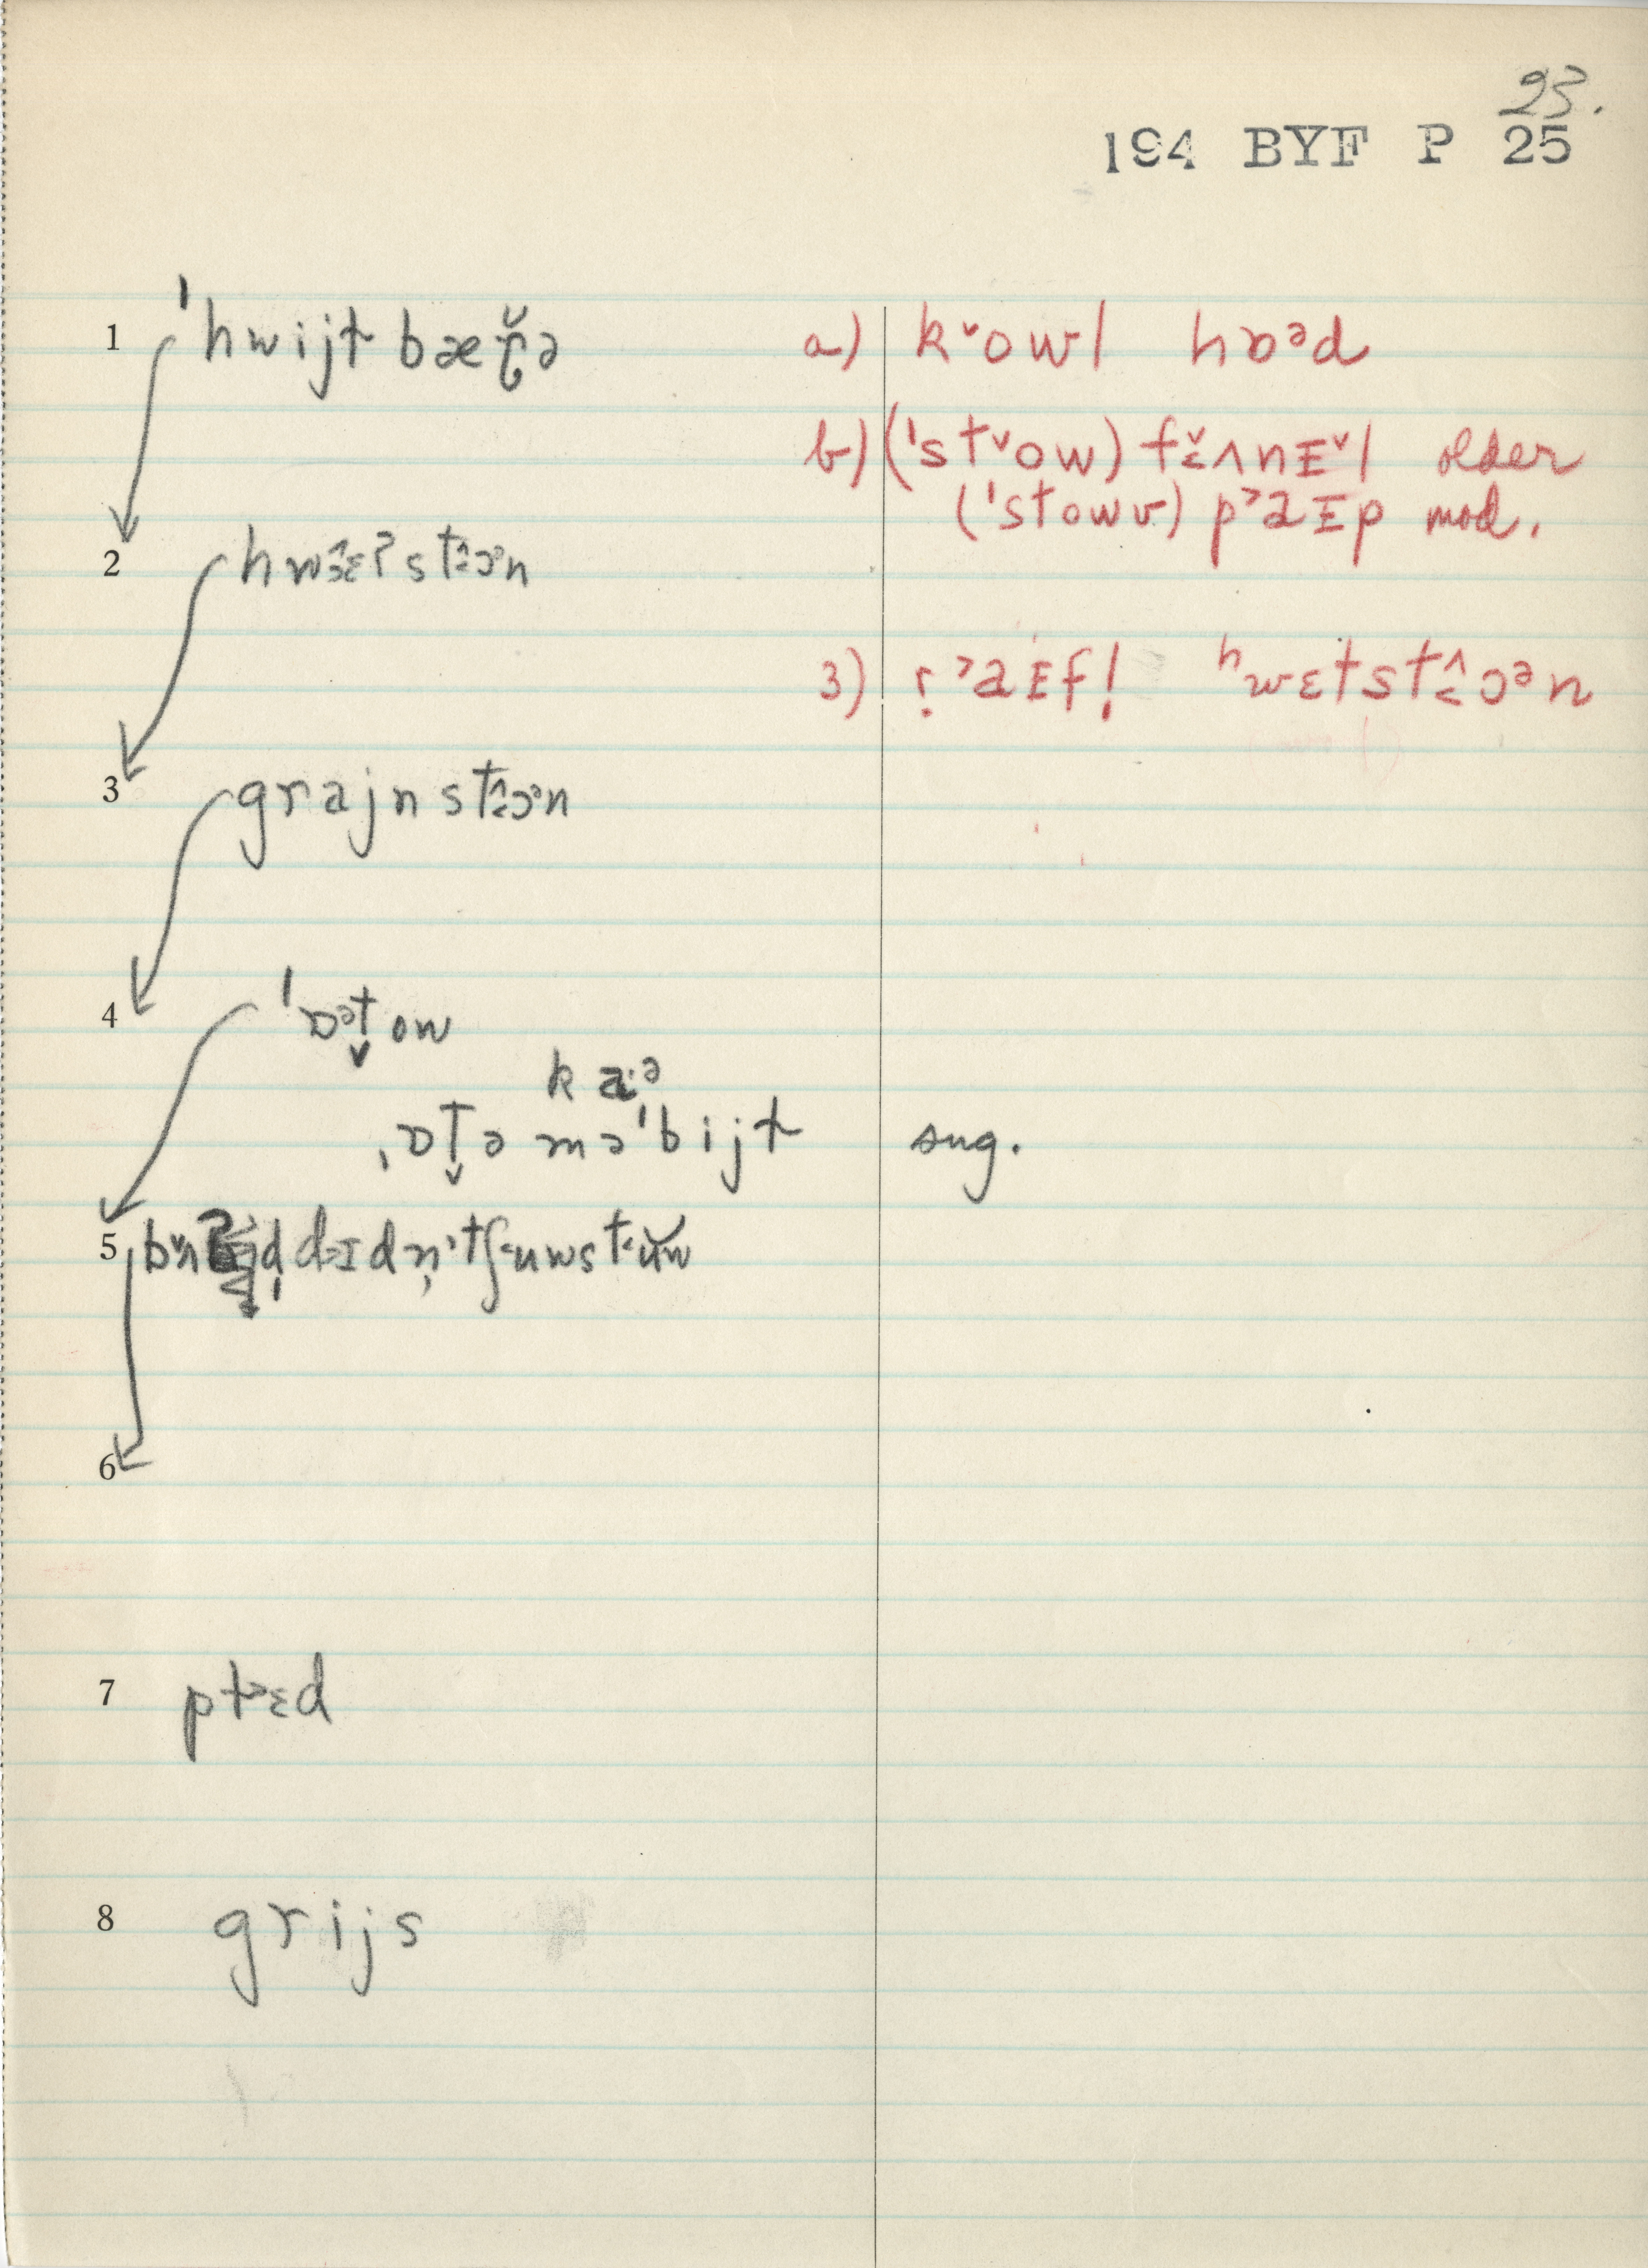 23.
194 BYF P 25
1 ˈhwijt bæɾ̬̆ə a) k˅owl hɒᵊd
b) (ˈst˅ow) fɛ̌ʌnᴇ˅l older
(ˈstowv) p˃aᴇp mod.
2 hwɜ̂ɛʔstɛ̂ɔᵊn
3) r̩˃aᴇf! ʰwɛtstɛ̂ɔᵊn
3 grajnstɛ̂ɔᵊn
4 ˈɒᵊt̬ow
ka·ᵊ
ˌɒt̬əməˈbijt sug.
5
6
7 pt˃ɛd
8 grijs